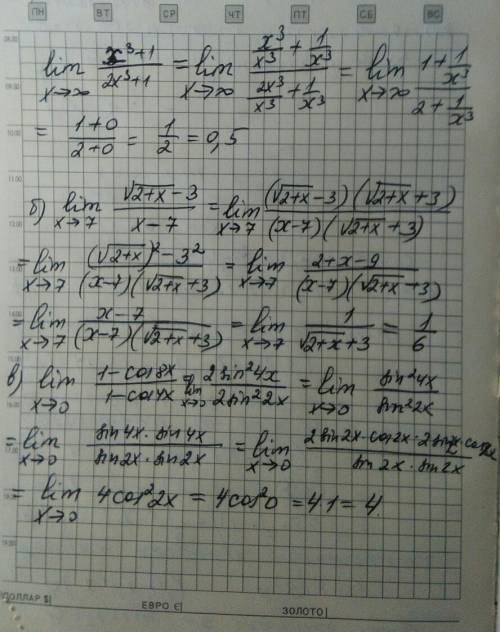 ПН ВТ СР ЧТ ПТ СБ ВС
lim x→∞ (x³+1)/(2x³+1) = lim x→∞ (x³/x³ + 1/x³)/(2x³/x³ + 1/x³) = lim x→∞ (1 + 1/x³)/(2 + 1/x³)
= (1+0)/(2+0) = 1/2 = 0,5
б) lim x→7 (√(2+x) - 3)/(x-7) = lim x→7 ((√(2+x) - 3)(√(2+x) + 3))/((x-7)(√(2+x) + 3))
= lim x→7 ((√(2+x))² - 3²)/((x-7)(√(2+x) + 3)) = lim x→7 (2+x-9)/((x-7)(√(2+x) + 3))
= lim x→7 (x-7)/((x-7)(√(2+x) + 3)) = lim x→7 1/(√(2+x) + 3) = 1/6
в) lim x→0 (1-cos8x)/(1-cos4x) = lim x→0 (2sin²4x)/(2sin²2x) = lim x→0 (sin²4x)/(sin²2x)
= lim x→0 (sin4x·sin4x)/(sin2x·sin2x) = lim x→0 (2sin2x·cos2x·2sin2x·cos2x)/(sin2x·sin2x)
= lim x→0 4cos²2x = 4cos²0 = 4·1 = 4
ДОЛЛАР $| ЕВРО €| ЗОЛОТО|